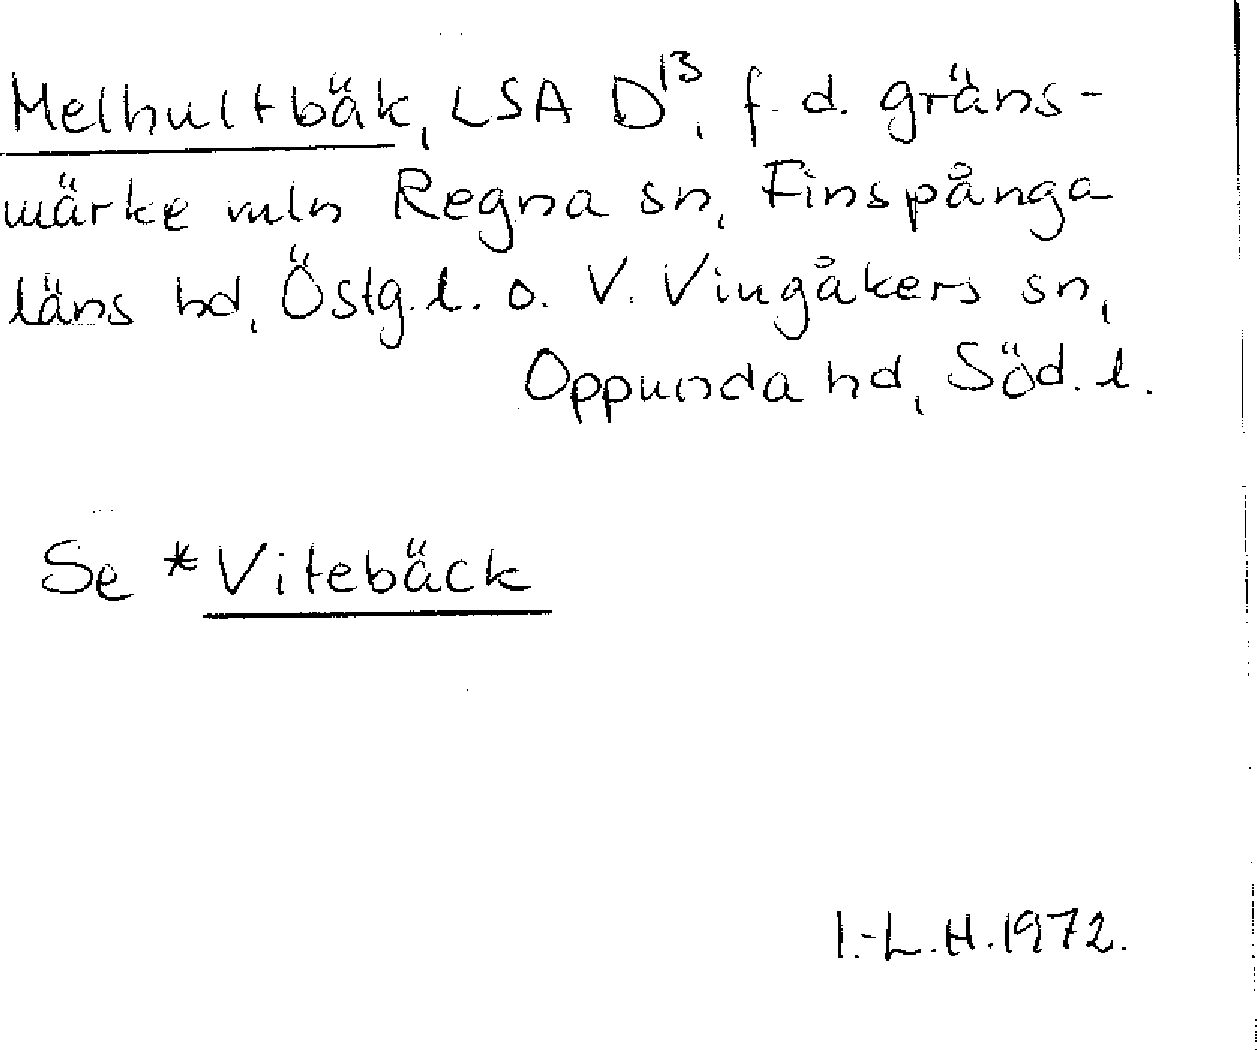 Melhultbäk, LSA D¹³, f.d. gräns-
märke mln Regna sn, Finspånga
läns hd, Östg.l. o. V. Vingåkers sn,
Oppunda hd, Söd.l.
Se *Vitebäck
I.-L.H.1972.